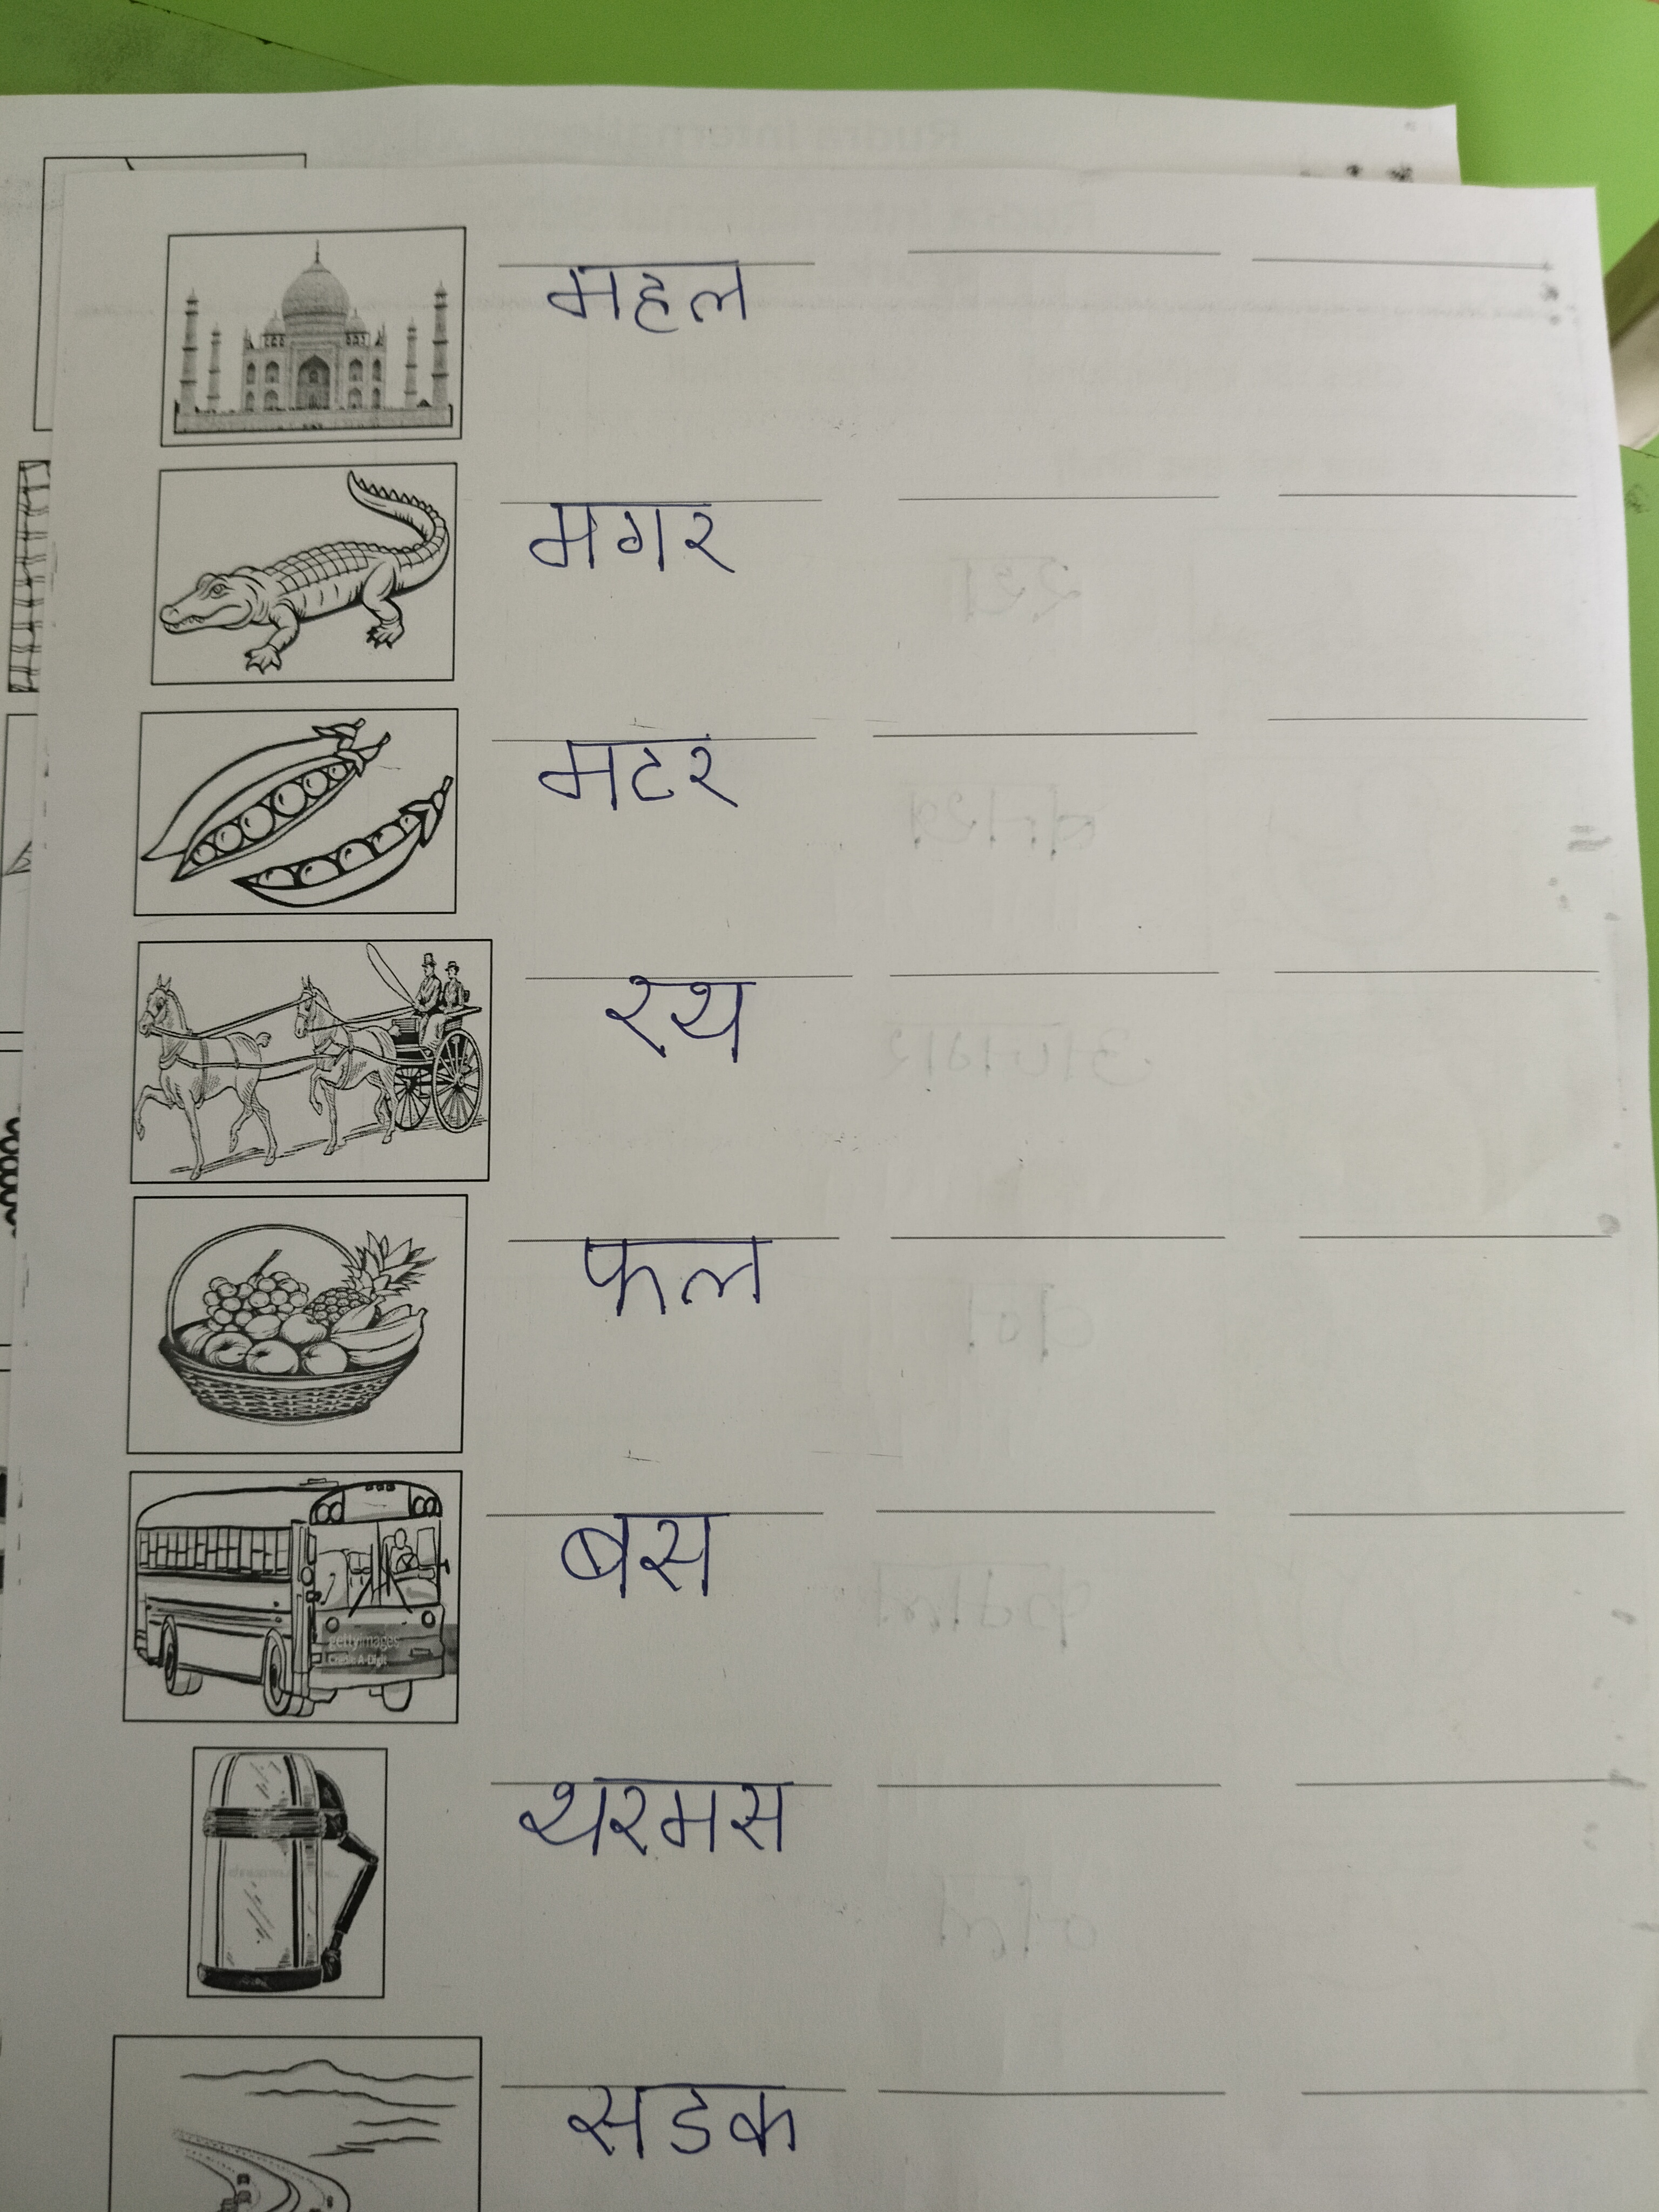 महल
मगर
मटर
रथ
फल
बस
gettyimages
थरमस
सडक